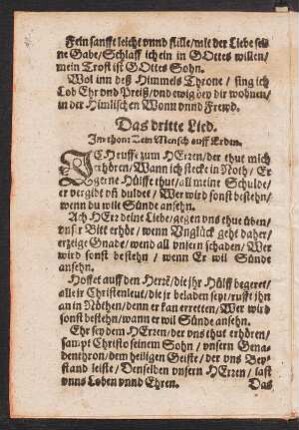 Fein sanfft leicht vnnd stille/mit der Liebe sei=
ne Gabe/Schlaff ich ein in GOttes willen/
mein Trost ist GOttes Sohn.
Wol inn deß Himmels Throne/sing ich
Lob Ehr vnd Preiß/vnd ewig bey dir wohnen/
in der Himlischen Wonn vnnd Frewd.
Das dritte Lied.
Im thon: Kein Mensch auff Erden.
ICH ruffe zum HErren/der thut mich
erhören/Wann ich stecke in Noth/Er
gerne Hülffe thut/all meine Schulde/
er vergibt vñ duldet/Wer wird sonst bestehn/
wenn du wilt Sünde ansehn.
Ach HErr deine Liebe/gegen vns thue üben/
vnser Bitt erhör/wenn Vnglück geht daher/
erzeige Gnade/wend all vnsern schaden/Wer
wird sonst bestehn/wenn Er wil Sünde
ansehn.
Hoffet auff den Herrn/die jhr Hülff begeret/
alle ir Christenleut/die jr beladen seyt/rufft ihn
an in Nöthen/denn er kan erretten/Wer wird
sonst bestehn/wann er wil Sünde ansehn.
Ehr sey dem HErren/der vns thut erhören/
sampt Christo seinem Sohn/vnsern Gena=
denthron/dem heiligen Geiste/der vns Bey=
stand leiste/Denselben vnsern HErren/last
vnns Loben vnnd Ehren.
Das